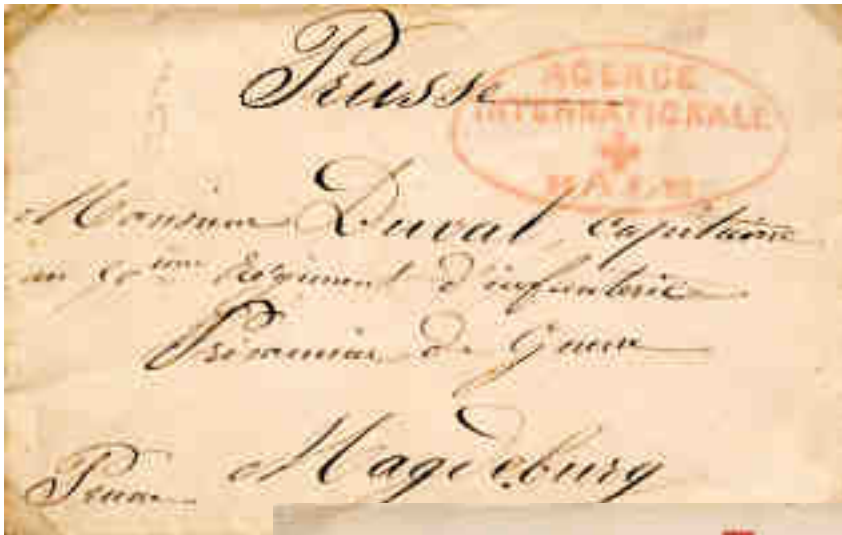 Prusse
AGENCE
INTERNATIONALE
BÂLE
Monsieur Duval, capitaine
au ème Régiment d'infanterie
Prisonnier de Guerre
Magdeburg
Prusse